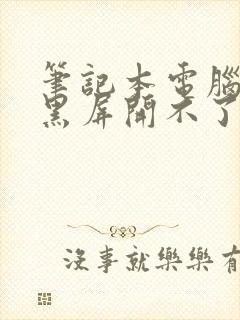 筆記本電腦
黑屏開不了
沒事就樂樂有